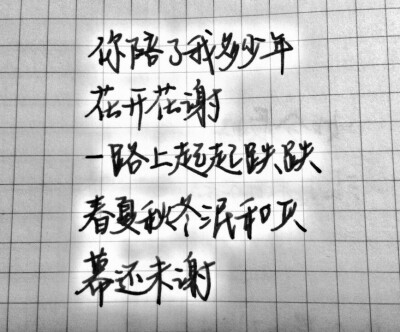 你陪了我多少年
花开花谢
一路上起起跌跌
春夏秋冬泯和灭
幕还未谢